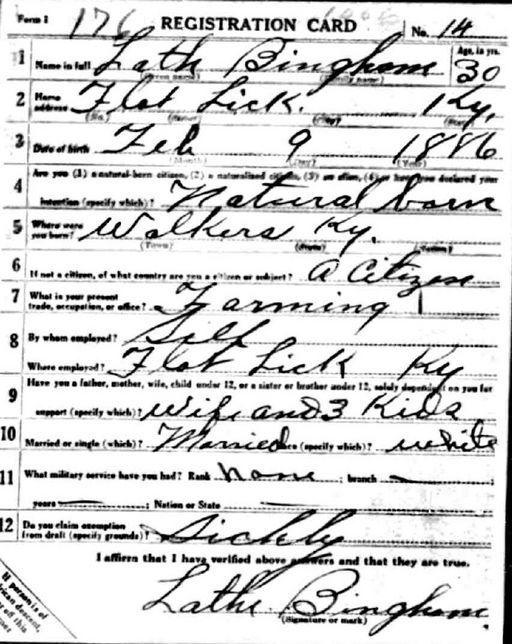 Form 1 176 REGISTRATION CARD No. 14
1 Name in full Lathe Bingham Age, in yrs. 30
(Given name) (Family name)
2 Home address Flat Lick. Ky.
(No.) (Street) (City) (State)
3 Date of birth Feb 9 1886
(Month) (Day) (Year)
Are you (1) a natural-born citizen, (2) a naturalized citizen, (3) an alien, (4) or have you declared your
4 intention (specify which)? Natural born
5 Where were you born? Walkers Ky.
(Town) (State) (Nation)
6 If not a citizen, of what country are you a citizen or subject? A Citizen
7 What is your present trade, occupation, or office? Farming
8 By whom employed? Self
Where employed? Flat Lick Ky
9 Have you a father, mother, wife, child under 12, or a sister or brother under 12, solely dependent on you for
support (specify which)? Wife and 3 Kids
10 Married or single (which)? Married Race (specify which)? White
11 What military service have you had? Rank None ; branch — ;
years — ; Nation or State —
12 Do you claim exemption from draft (specify grounds)? Sickly
I affirm that I have verified above answers and that they are true.
Lathe Bingham.
(Signature or mark)
If person is of
African descent,